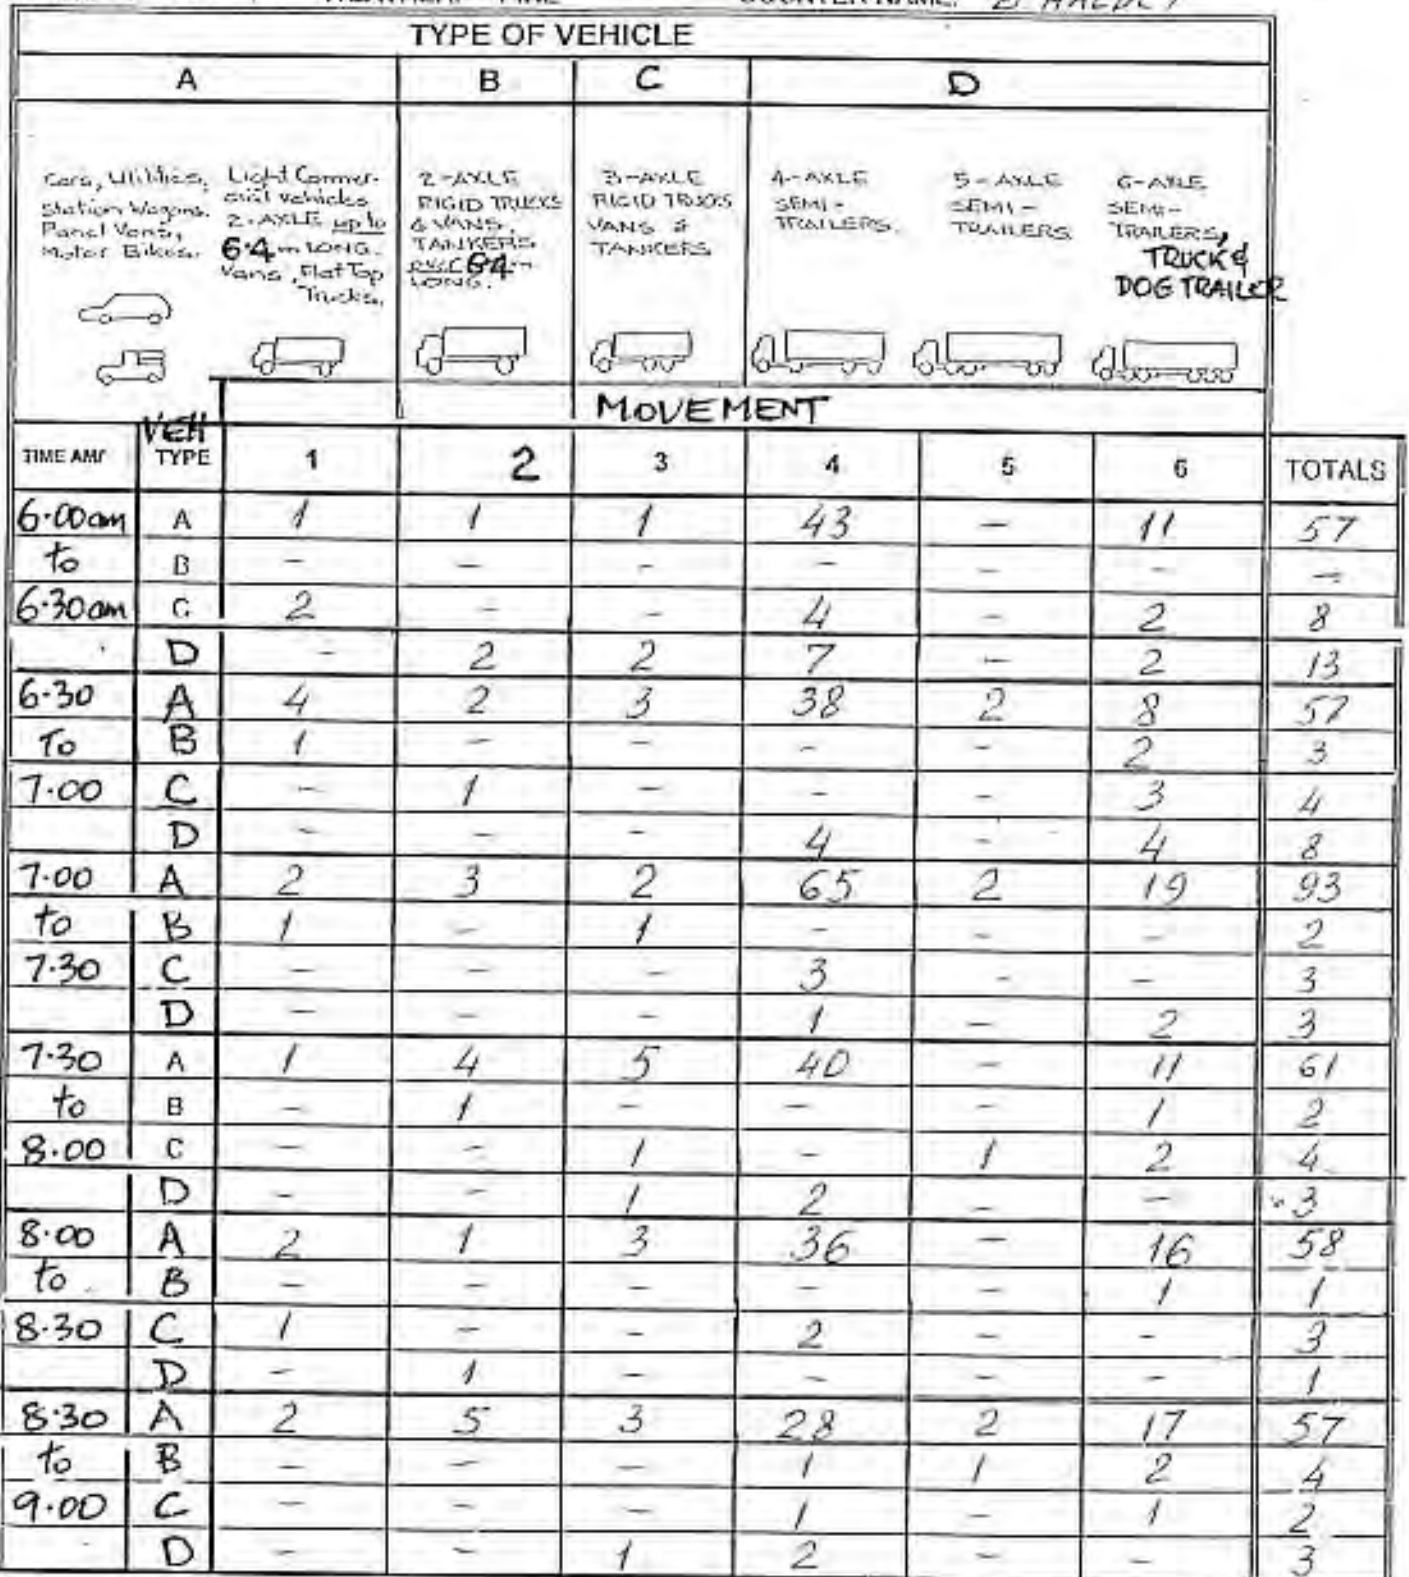 COUNTER NAME:
TYPE OF VEHICLE
A B C D
Cars, Utilities,
Station Wagons,
Panel Vans,
Motor Bikes.
Light Commer-
cial vehicles
2-AXLE up to
6.4m LONG.
Vans, Flat Top
Trucks.
2-AXLE
RIGID TRUCKS
& VANS,
TANKERS
over 6.4m
LONG.
3-AXLE
RIGID TRUCKS
VANS &
TANKERS
4-AXLE
SEMI-
TRAILERS.
5-AXLE
SEMI-
TRAILERS
6-AXLE
SEMI-
TRAILERS,
TRUCK &
DOG TRAILER
MOVEMENT
TIME AM/ VEH TYPE 1 2 3 4 5 6 TOTALS
6.00am A 1 1 1 43 - 11 57
to B - - - - - - -
6.30am C 2 - - 4 - 2 8
D - 2 2 7 - 2 13
6.30 A 4 2 3 38 2 8 57
To B 1 - - - - 2 3
7.00 C - 1 - - - 3 4
D - - - 4 - 4 8
7.00 A 2 3 2 65 2 19 93
to B 1 - 1 - - - 2
7.30 C - - - 3 - - 3
D - - - 1 - 2 3
7.30 A 1 4 5 40 - 11 61
to B - 1 - - - 1 2
8.00 C - - 1 - 1 2 4
D - - 1 2 - - 3
8.00 A 2 1 3 36 - 16 58
to B - - - - - 1 1
8.30 C 1 - - 2 - - 3
D - 1 - - - - 1
8.30 A 2 5 3 28 2 17 57
to B - - - 1 1 2 4
9.00 C - - - 1 - 1 2
D - - 1 2 - - 3